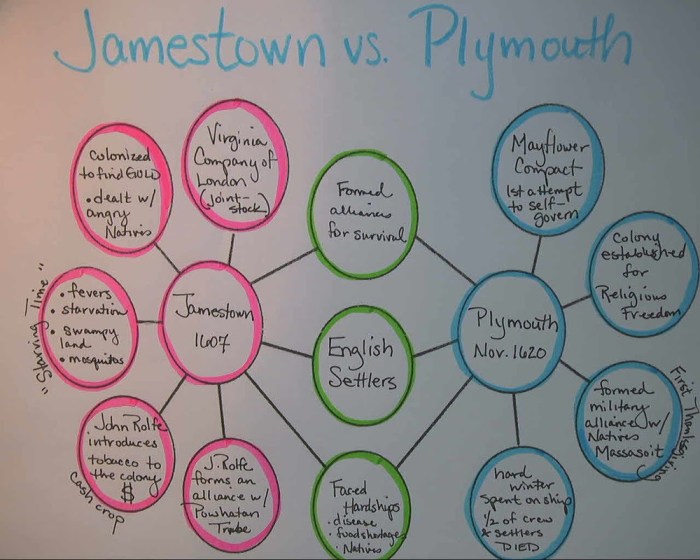 Jamestown vs. Plymouth
Colonized
to find GOLD
• dealt w/
angry
Natives
Virginia
Company of
London
(joint-
stock)
Formed
alliances
for survival
Mayflower
Compact
1st attempt
to self-
govern
Colony
established
for
Religious
Freedom
"Starving Time"
• fevers
• starvation
• swampy
land
• mosquitos
Jamestown
1607
English
Settlers
Plymouth
Nov. 1620
John Rolfe
introduces
tobacco to
the colony
$
Cash crop
J. Rolfe
forms an
alliance w/
Powhatan
Tribe
Faced
Hardships
• disease
• food shortages
• Natives
hard
winter
spent on ship
1/2 of crew
& settlers
DIED
formed
military
alliance w/
Natives
Massasoit
First Thanksgiving